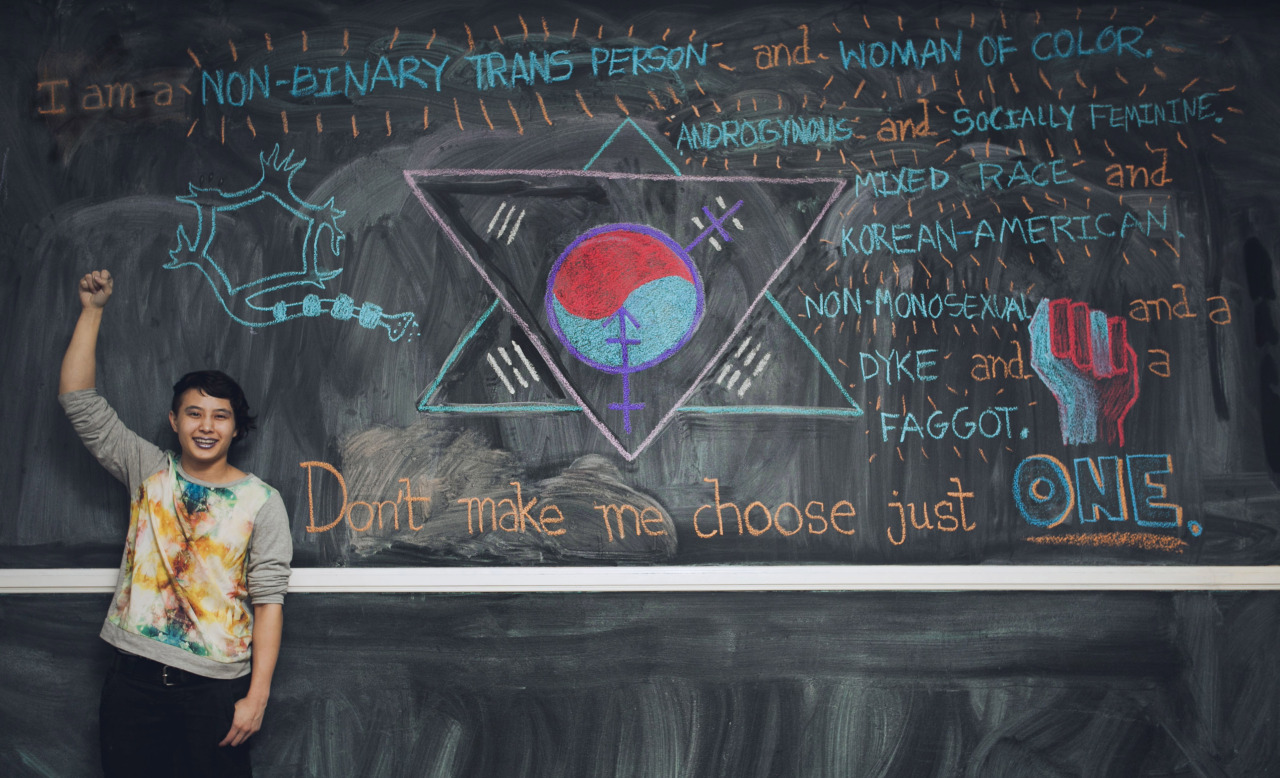 I am a NON-BINARY TRANS PERSON and WOMAN OF COLOR.
ANDROGYNOUS and SOCIALLY FEMININE.
MIXED RACE and
KOREAN-AMERICAN.
NON-MONOSEXUAL and a
DYKE and a
FAGGOT.
Don't make me choose just ONE.